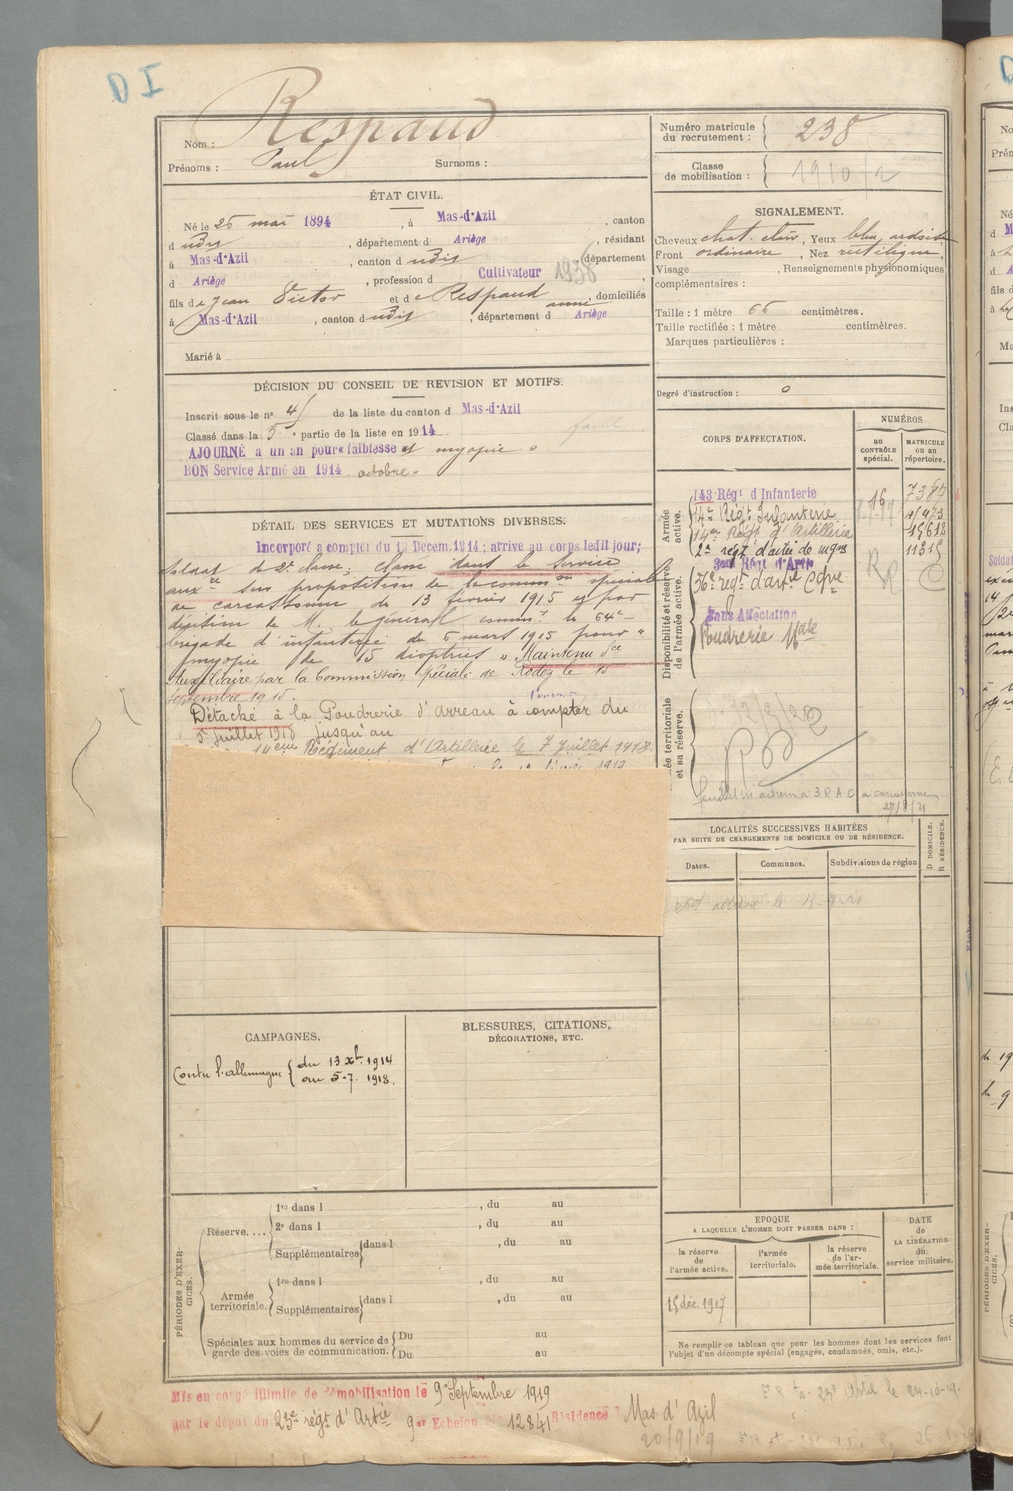 D I
Nom : Respaud
Prénoms : Paul Surnoms :
Numéro matricule du recrutement : 238
Classe de mobilisation : 1910/2
ÉTAT CIVIL.
Né le 25 mai 1894, à Mas-d'Azil, canton
d udit, département d Ariège, résidant
à Mas-d'Azil, canton d udit, département
d Ariège, profession d Cultivateur 1938
fils de Jean Victor et de Respaud anne, domiciliés
à Mas-d'Azil, canton d udit, département d Ariège
Marié à
SIGNALEMENT.
Cheveux chat. clair, Yeux bleu ardoisé
Front ordinaire, Nez rectiligne,
Visage, Renseignements physionomiques
complémentaires :
Taille : 1 mètre 65 centimètres.
Taille rectifiée : 1 mètre centimètres.
Marques particulières :
Degré d'instruction : 0
DÉCISION DU CONSEIL DE REVISION ET MOTIFS.
Inscrit sous le n° 41 de la liste du canton d Mas-d'Azil
Classé dans la 5e partie de la liste en 1914
AJOURNÉ à un an pour « faiblesse et myopie »
BON Service Armé en 1914 octobre.
DÉTAIL DES SERVICES ET MUTATIONS DIVERSES.
Incorporé à compter du Décem. 1914 ; arrivé au corps ledit jour ;
soldat de 2e classe ; classé dans le service
auxre sur proposition de la common spéciale
de carcassonne du 13 février 1915 et par
décision de M. le général commt la 64e
brigade d'infanterie du 6 mars 1915 pour "
myopie de 15 dioptries " Maintenu Sce
Auxiliaire par la Commission Spéciale de Rodez le 10
Septembre 1915.
Détaché à la Poudrerie d' à compter du
5 juillet 1918 jusqu'au
14eme Régiment d'Artillerie le 7 Juillet 1918.
CORPS D'AFFECTATION.
NUMÉROS
au contrôle spécial.
matricule ou au répertoire.
Armée active.
143 Régt d Infanterie 16 7384
14e Régt Infanterie
14e Régt d'Artillerie 15612
2e régt d'artie de mgne 11315
Disponibilité et réserve de l'armée active.
36e régt d'artie Cgne
Sans Affectation
Poudrerie Nale
ée territoriale et sa réserve.
LOCALITÉS SUCCESSIVES HABITÉES
PAR SUITE DE CHANGEMENTS DE DOMICILE OU DE RÉSIDENCE.
Dates. Communes. Subdivisions de région
D DOMICILE.
R RÉSIDENCE.
CAMPAGNES.
Contre l'allemagne { du 13 Xbre 1914
au 5-7. 1918.
BLESSURES, CITATIONS,
DÉCORATIONS, ETC.
PÉRIODES D'EXERCICES.
Réserve....
1re dans l , du au
2e dans l , du au
Supplémentaires dans l , du au
Armée territoriale.
1re dans l , du au
Supplémentaires dans l , du au
Spéciales aux hommes du service de
garde des voies de communication.
Du au
Du au
EPOQUE
A LAQUELLE L'HOMME DOIT PASSER DANS :
la réserve de l'armée active.
l'armée territoriale.
la réserve de l'armée territoriale.
DATE de LA LIBÉRATION du service militaire.
15 déc. 1917
Ne remplir ce tableau que pour les hommes dont les services font
l'objet d'un décompte spécial (engagés, condamnés, omis, etc.).
Mis en congé illimité de démobilisation le 9 Septembre 1919
par le dépôt du 23e régt d'Artie 9er Echelon No 12841 Résidence : Mas d'Azil
20/9/19